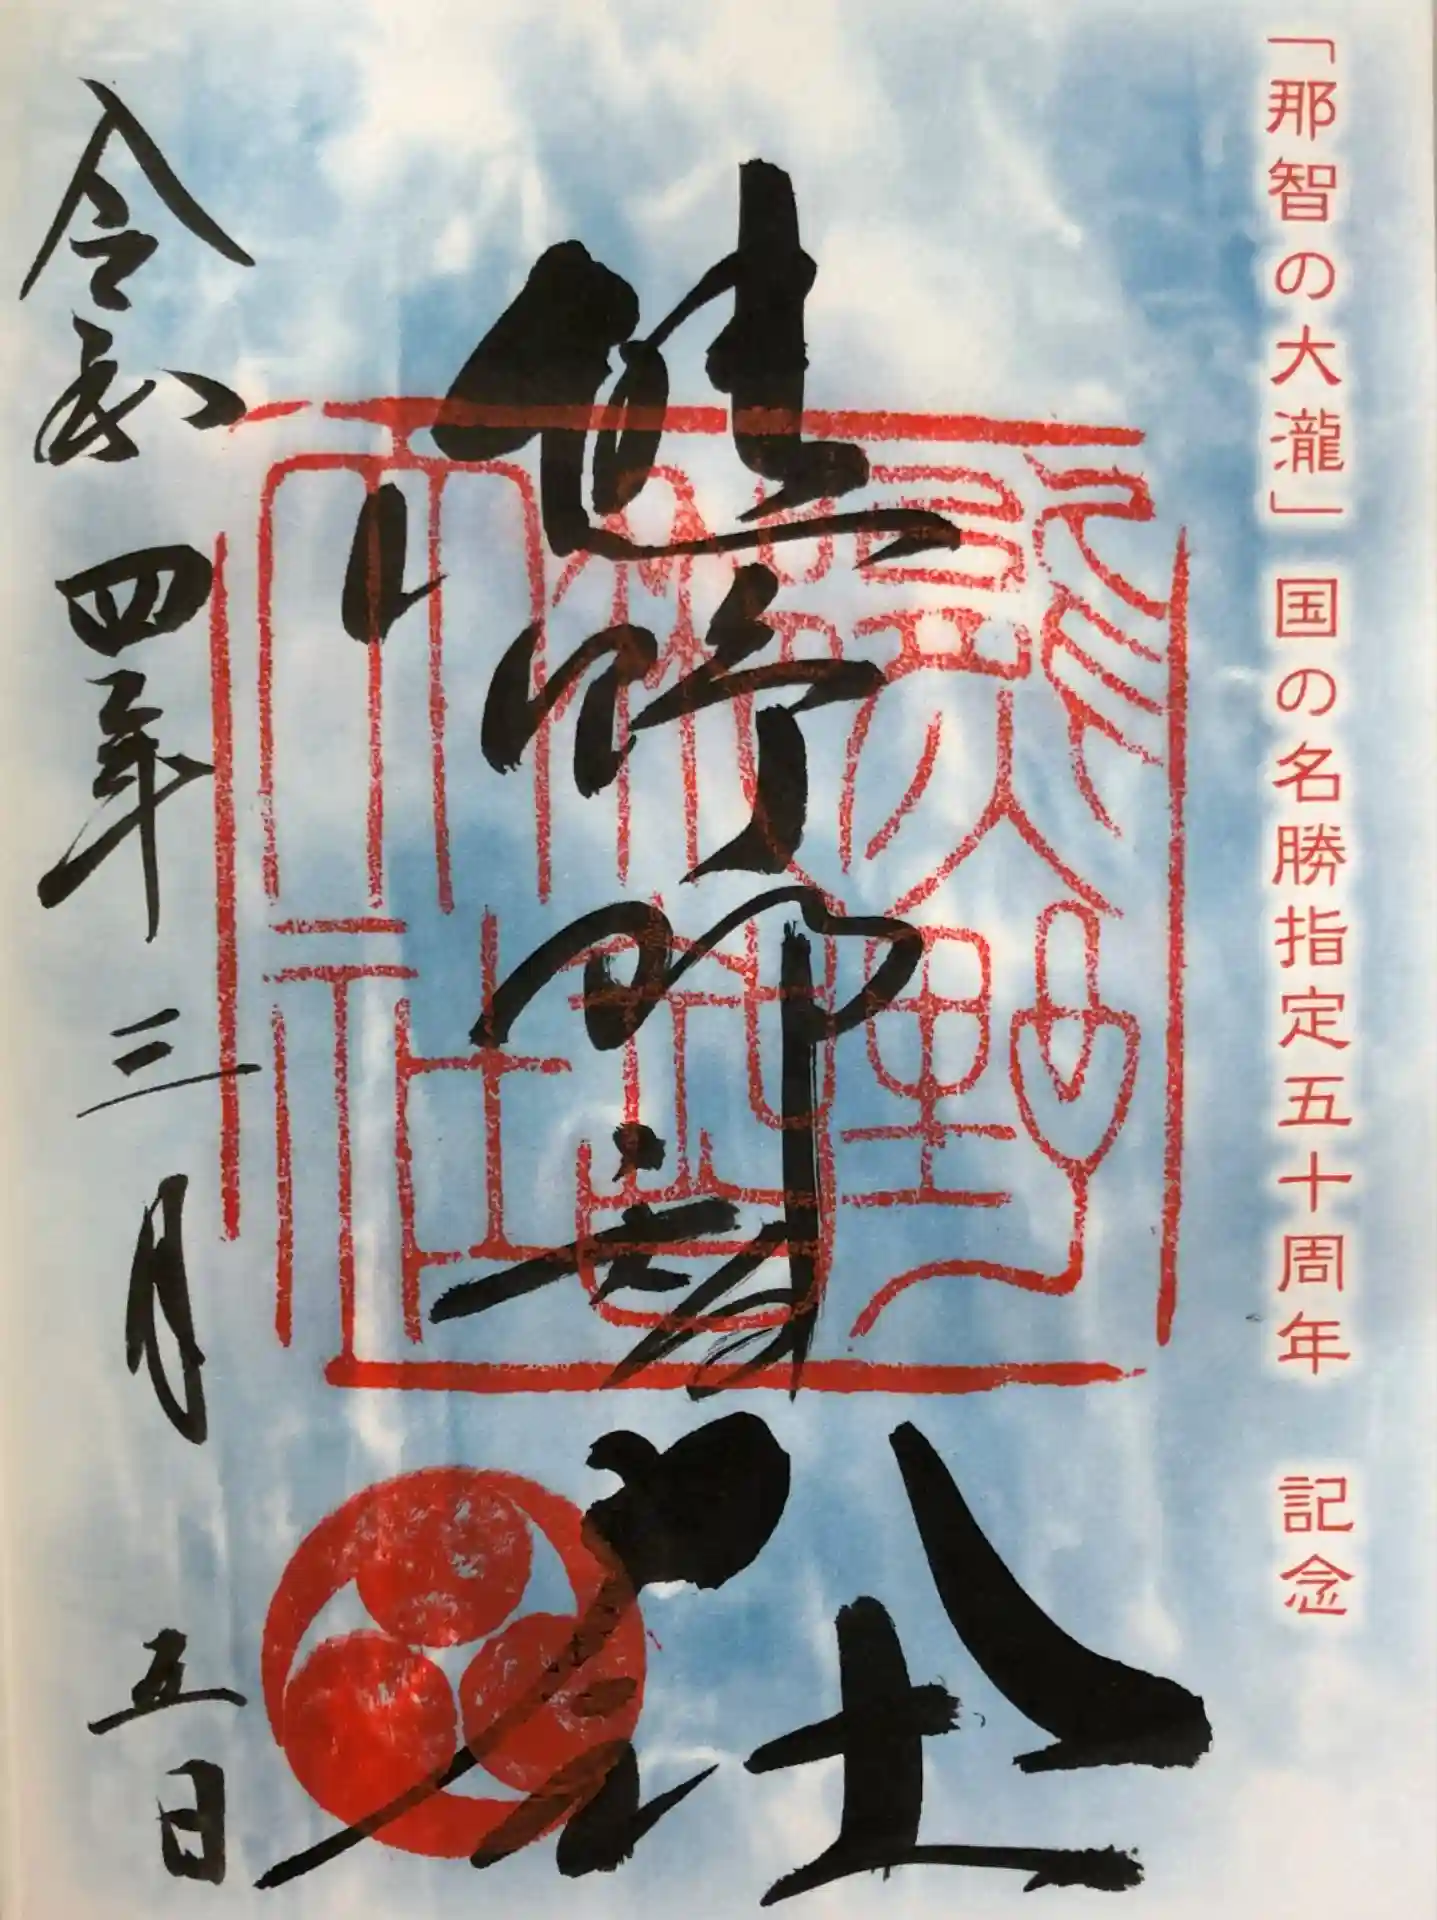 「那智の大瀧」国の名勝指定五十周年 記念
熊野那智大社
令和四年三月五日